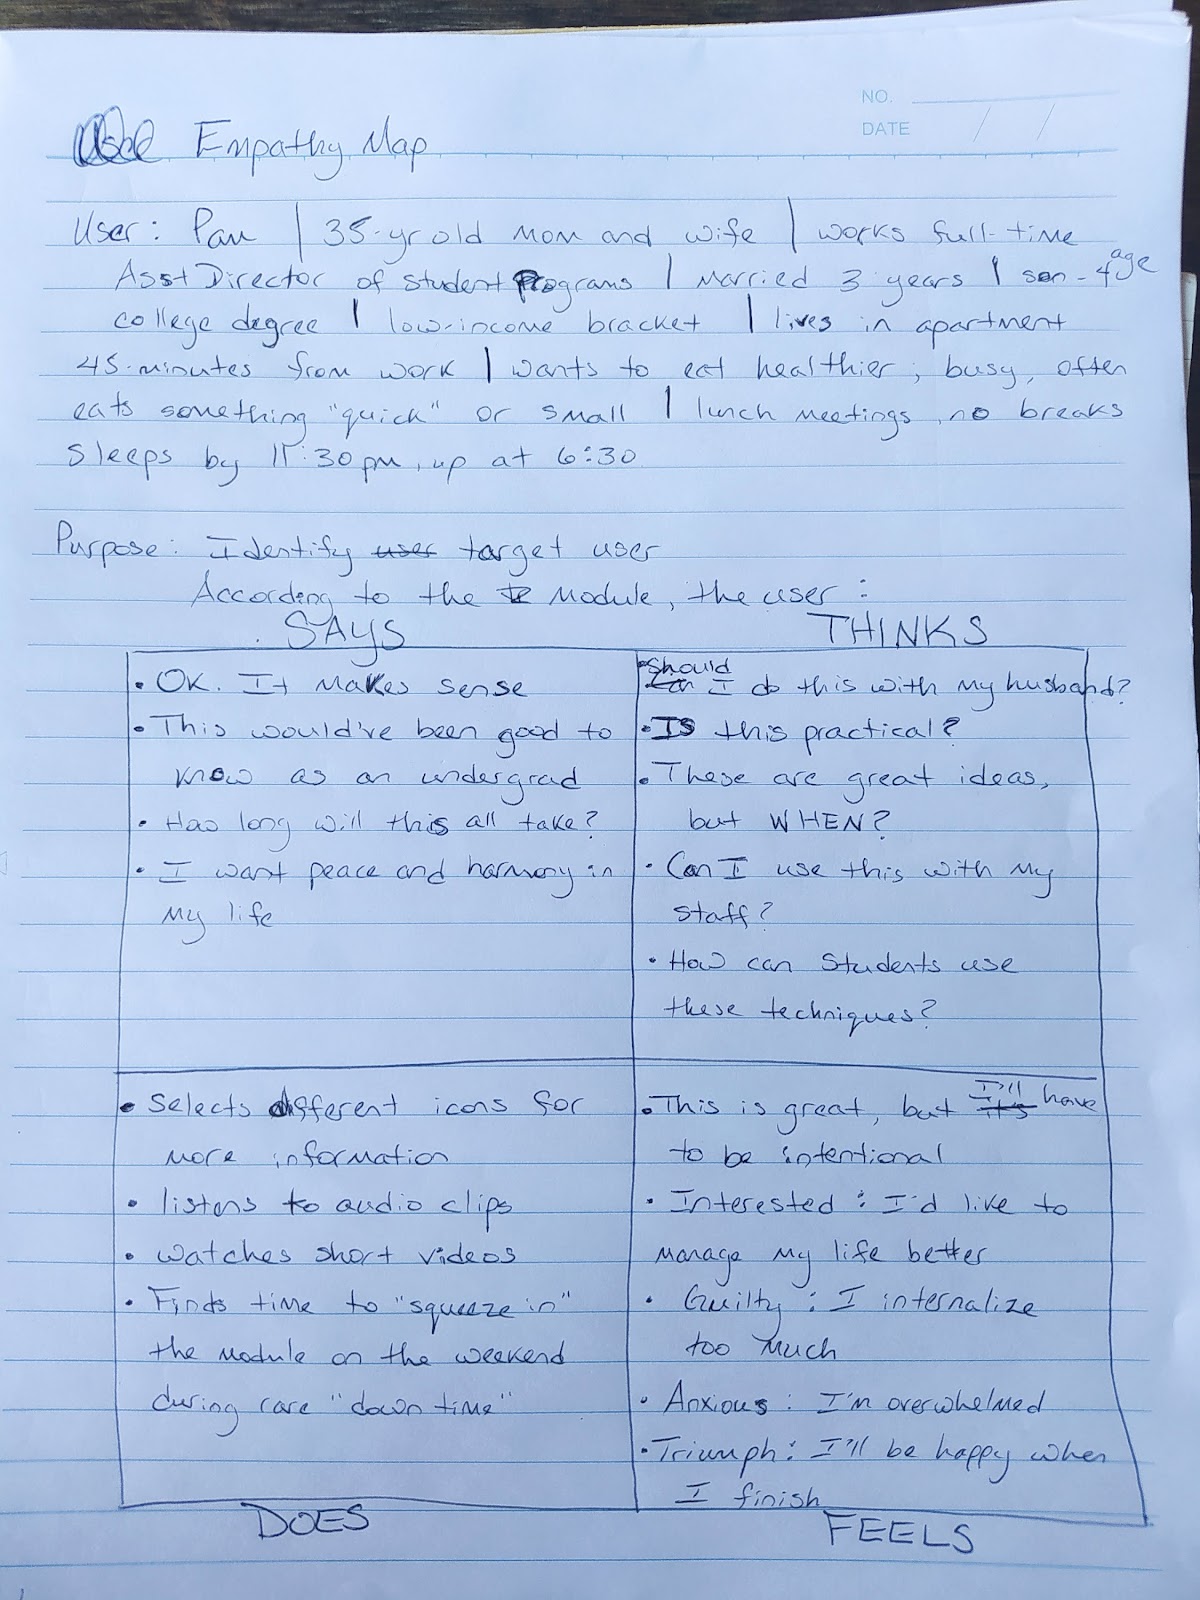 NO.
DATE / /
Empathy Map
User: Pam | 35-yr old mom and wife | works full-time
Asst Director of student Programs | married 3 years | son - 4 age
college degree | low-income bracket | lives in apartment
45-minutes from work | wants to eat healthier; busy, often
eats something "quick" or small | lunch meetings, no breaks
sleeps by 11:30pm, up at 6:30
Purpose: Identify user target user
According to the module, the user:
SAYS
• OK. It makes sense
• This would've been good to
know as an undergrad
• How long will this all take?
• I want peace and harmony in
my life
THINKS
• Should
Can I do this with my husband?
• Is this practical?
• These are great ideas,
but WHEN?
• Can I use this with my
staff?
• How can students use
these techniques?
• Selects different icons for
more information
• listens to audio clips
• watches short videos
• Finds time to "squeeze in"
the module on the weekend
during rare "down time"
DOES
• This is great, but it's I'll have
to be intentional
• Interested: I'd like to
manage my life better
• Guilty: I internalize
too much
• Anxious: I'm overwhelmed
• Triumph: I'll be happy when
I finish
FEELS